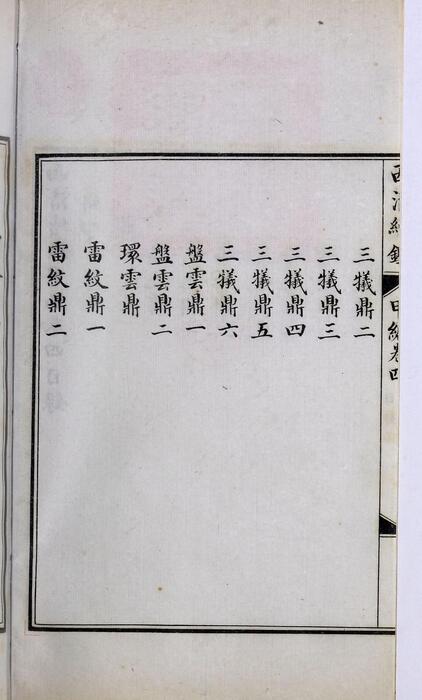 西清續鑑
甲編卷四
三犧鼎二
三犧鼎三
三犧鼎四
三犧鼎五
三犧鼎六
盤雲鼎一
盤雲鼎二
環雲鼎
雷紋鼎一
雷紋鼎二